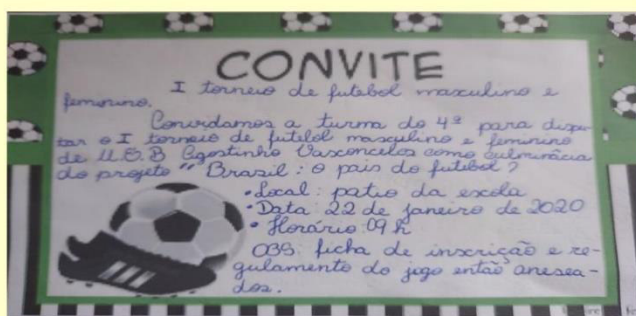 CONVITE
I torneio de futebol masculino e
feminino.
Convidamos a turma do 4º para dispu-
tar o I torneio de futebol masculino e feminino
de U.E.B Agostinho Vasconcelos como culminácia
do projeto "Brasil: o pais do futebol?
• Local: patio da escola
• Data: 22 de janeiro de 2020
• Horário: 09 h
OBS: ficha de inscrição e re-
gulamento do jogo então anesea-
dos.